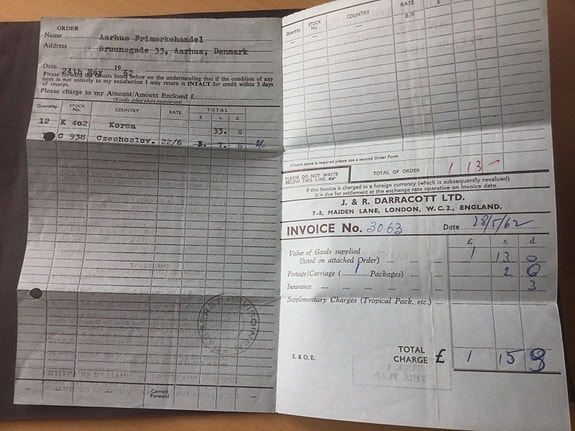 ORDER
Name Aarhus Frimærkehandel
Address Bruunsgade 33, Aarhus, Denmark
Date 24th May 19 62
Please forward the goods listed below on the understanding that if the condition of any
item is not entirely to my satisfaction I may return it INTACT for credit within 3 days
of receipt.
Please charge to my Account/Amount Enclosed £
(Kindly delete where inappropriate)
Quantity STOCK No. COUNTRY RATE TOTAL
£ s d
12 K 402 Korea 33. 0
C 938 Czechoslov. 22/6 7. 6
Carried Forward
Quantity STOCK No. COUNTRY RATE
B/F
If more space is required please use a second Order Form.
PLEASE DO NOT WRITE
BELOW THIS LINE
TOTAL OF ORDER 1 13 -
If this Invoice is charged in a foreign currency (which is subsequently revalued)
it is due for settlement at the exchange rate operative on Invoice date.
J. & R. DARRACOTT LTD.
7-8, MAIDEN LANE, LONDON, W.C.2, ENGLAND.
INVOICE No. 3063 Date 28/5/62
£ s. d.
Value of Goods supplied
(listed on attached Order) 1 13 0
Postage/Carriage (1 Packages) 2 6
Insurance 3
Supplementary Charges (Tropical Pack, etc.)
E. & O. E. TOTAL CHARGE £ 1 15 9